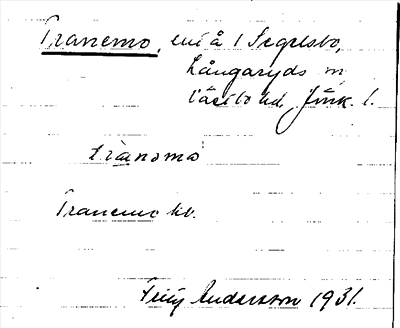 Tranemo, en å i Segelsbo,
Långaryds sn
Västbo hd, Jönk. l.
tranəmo
Tranemo kv.
Fritz Andersson 1931.